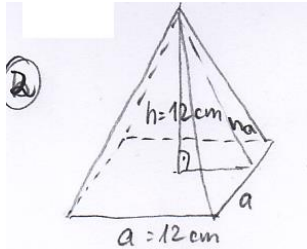 2
h = 12 cm
ha
a
a = 12 cm